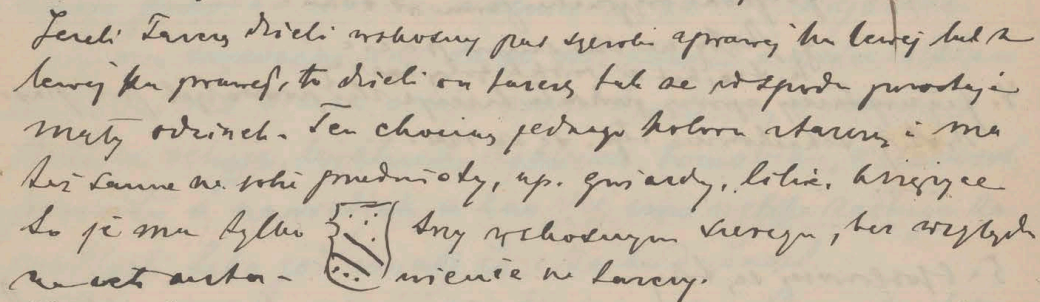 Jeżeli tarczę dzieli wskośny pas szeroki z prawej ku lewej lub z
lewej ku prawej, to dzieli on tarczę tak że u spodu powstaje
mały odcinek. Ten chociaż jednego koloru z tarczą i ma
też same na sobie przedmioty, np. gwiazdy, lilie, księżyce
to je ma tylko trzy wskośnym szeregu, bez względu
na ich na tarczy.